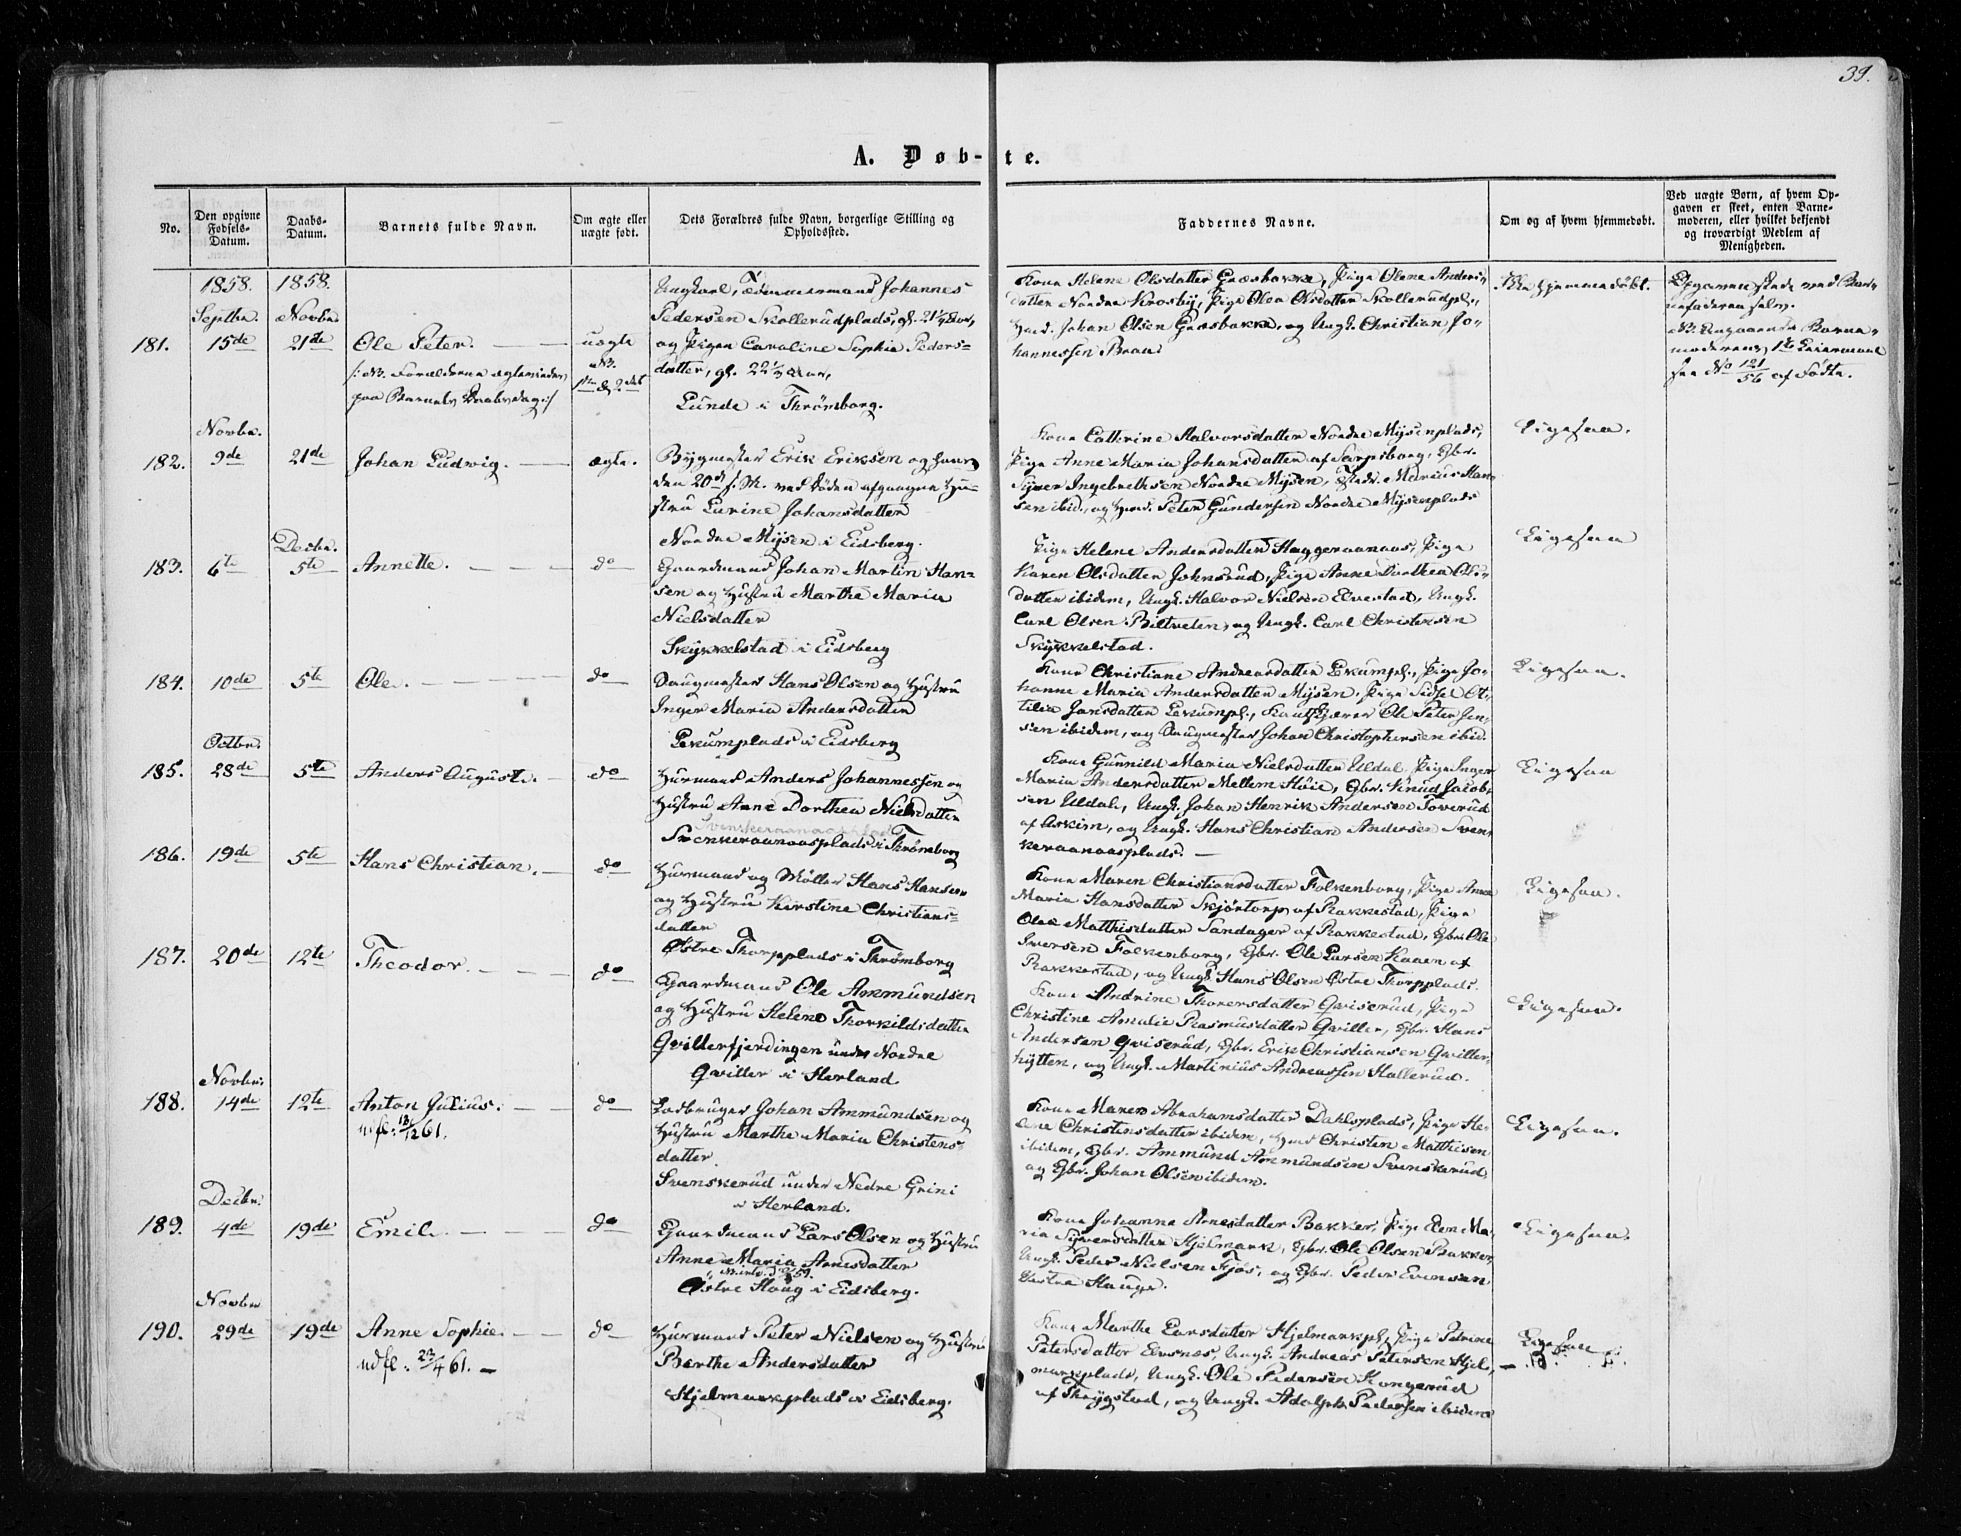 39.
A. Døb-te.
No.
Den opgivne Fødsels-Datum.
Daabs-Datum.
Barnets fulde Navn.
Om ægte eller uægte født.
Dets Forældres fulde Navn, borgerlige Stilling og Opholdssted.
Faddernes Navne.
Om og af hvem hjemmedøbt.
Ved uægte Børn, af hvem Opgaven er skeet, enten Barnemoderen, eller hvilket bekjendt og troværdigt Medlem af Menigheden.
1858. 1858.
Septbr. Novbr.
181. 15de 21de Ole Peter. uægte
Ungkarl, Tømmermand Johannes
Pedersen Skollerudplads, gl. 21 1/4 Aar,
og Pigen Caroline Sophie Peders-
datter, gl. 22 1/2 Aar,
Lunde i Thrømborg.
/: NB. Forældrene
paa Barnets Daabsdag :/
Kone Helene Olsdatter Gaasbakke, Pige Olene Anders-
datter Nordre Krosby, Pige Olea Olsdatter Skollerudpl.,
Huusm. Johan Olsen Gaasbakke, og Ungk. Christian Jo-
hannessen Brau
Ikke hjemmedøbt.
No 121/56 af Fødte.
Novbr.
182. 9de 21de Johan Ludwig. ægte.
Bygmester Erik Eriksen og hans
den 20de f. M. ved Døden afgangne Hu-
stru Lurine Johansdatter
Nordre Mysen i Eidsberg.
Kone Cathrine Halvorsdatter Nordre Mysenplads,
Pige Anne Maria Johansdatter af Sarpsborg, Gbr.
Syver Ingebrethsen Nordre Mysen, Marcus Han-
sen ibid., og Huusm. Peter Gundersen Nordre Mysenplads
Ligesaa.
Decbr.
183. 6te 5te Annette. do
Gaardmand Johan Martin Han-
sen og Hustru Marthe Maria
Nielsdatter
Skykkelstad i Eidsberg
Pige Helene Andersdatter Haggeraanaas, Pige
Karen Olsdatter Johnsrud, Pige Anne Dorthea Ols-
datter ibidem, Ungk. Halvor Nielsen Elvestad, Ungk.
Carl Olsen Biltveten, og Ungk. Carl Christensen
Skykkelstad.
Ligesaa
184. 10de 5te Ole. do
Saugmester Hans Olsen og Hustru
Inger Maria Andersdatter
Lekumplads i Eidsberg
Kone Christiane Andreasdatter Lekumpl., Pige Jo-
hanne Maria Andersdatter Mysen, Pige Sidsel Ot-
tilia Jansdatter Lekumpl., Ole Peter Jen-
sen ibidem, og Saugmester Johan Christophersen ibid.
Ligesaa.
Octbr.
185. 28de 5te Anders August. do
Huusmand Anders Johannessen og
Hustru Anne Dorthea Nielsdatter
Svenkeraanaasplads i Thrømborg
Kone Gunnild Maria Nielsdatter Uldal, Pige Inger
Maria Andersdatter Mellem Huie, Gbr. Knud Jacob-
sen Uldal, Ungk. Johan Henrik Andersen Toverud
af Askim, og Ungk. Hans Christian Andersen Sven-
keraanaasplads.
Ligesaa
186. 19de 5te Hans Christian. do
Huusmand og Møller Hans Hansen
og Hustru Kirstine Christians-
datter
Østre Thorpplads i Thrømborg
Kone Maren Christiansdatter Folkenborg, Pige Anne
Maria Hansdatter Skjørtorp af Rakkestad, Pige
Olea Matthisdatter Sandager af Rakkestad, Gbr. Ole
Iversen Folkenborg, Gbr. Ole Larsen Kaaen af
Rakkestad, og Ungk. Hans Olsen Østre Thorpplads.
Ligesaa.
187. 20de 12te Theodor. do
Gaardmand Ole Ammundsen
og Hustru Helene Thorkildsdatter
Gvitterfjerdingen under Nordre
Gvitter i Herland.
Kone Andrine Thorersdatter Gviserud, Pige
Christine Amalie Rasmusdatter Gvitter, Gbr. Hans
Andersen Gviserud, Gbr. Erik Christiansen Gvitter-
hytten, og Ungk. Martinius Andreassen Hallerud.
Ligesaa.
Novbr.
188. 14de 12te Anton Julius. do
Lodbruger Johan Ammundsen og
Hustru Marthe Maria Christens-
datter
Svenskerud under Nedre Grini
i Herland.
Kone Maren Abrahamsdatter Dahlsplads, Pige He-
lene Christensdatter ibidem, Huusm. Christen Matthisen
ibidem, Gbr. Ammund Ammundsen Svenskerud
og Gbr. Johan Olsen ibidem.
Ligesaa.
Decbr.
189. 4de 19de Emil. do
Gaardmand Lars Olsen og Hustru
Anne Maria Arnesdatter
Østre Haug i Eidsberg.
Kone Johanne Arnesdatter Bakker, Pige Elen Ma-
ria Syversdatter Hjelmark, Gbr. Ole Olsen Bakker,
Ungk. Peder Nielsen Fjøs, og Gbr. Peder Evensen
Vestre Haug.
Ligesaa.
Novbr.
190. 29de 19de Anne Sophie. do
udfl. 23/4 61.
Huusmand Peter Nielsen og Hustru
Berthe Andersdatter
Hjelmarkplads i Eidsberg.
Kone Marthe Larsdatter Hjelmarkpl., Pige Petrine
Petersdatter, Ungk. Andreas Petersen Hjel-
markplads, Ungk. Ole Pedersen Kongerud
og Ungk. Adolph Pedersen ibidem
Ligesaa